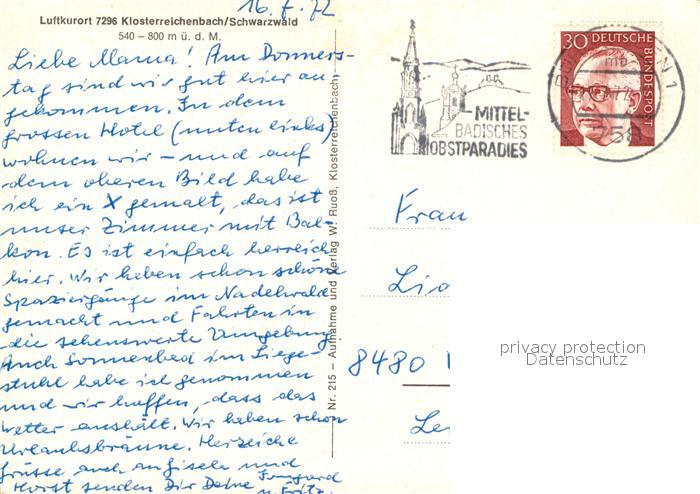 16. 7. 72
Luftkurort 7296 Klosterreichenbach/Schwarzwald
540 – 800 m ü. d. M.
Liebe Mama! Am Donners-
tag sind wir gut hier an
gekommen. In dem
grossen Hotel (unten links)
wohnen wir – und auf
dem oberen Bild habe
ich ein X gemalt, das ist
unser Zimmer mit Bal-
kon. Es ist einfach herrlich
hier. Wir haben schon schöne
Spaziergänge im Nadelwald
gemacht und Fahrten in
die sehenswerte Umgebung
Auch Sonnenbad im Liege-
stuhl habe ich genommen
und wir hoffen, dass das
Wetter anhält. Wir haben schon
Urlaubsbräune. Herzliche
Grüsse auch an Gisela und
Horst senden Dir Deine Irmgard
u. Fritz.
Nr. 215 – Aufnahme und Verlag W. Ruoß, Klosterreichenbach
MITTEL-
BADISCHES
OBSTPARADIES
30 DEUTSCHE
BUNDESPOST
758
Frau
Lio
8480
Le
privacy protection
Datenschutz